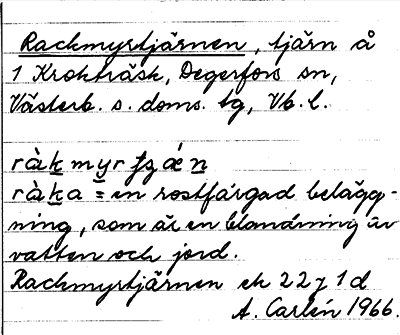 Rackmyrtjärnen, tjärn å
1 Krokträsk, Degerfors sn,
Västerb. s. doms. tg, Vb. l.
ràk myr
ràka = en rostfärgad belägg-
ning, som är en blandning av
vatten och jord.
Rackmyrtjärnen ek 22 J 1d
A. Carlén 1966.